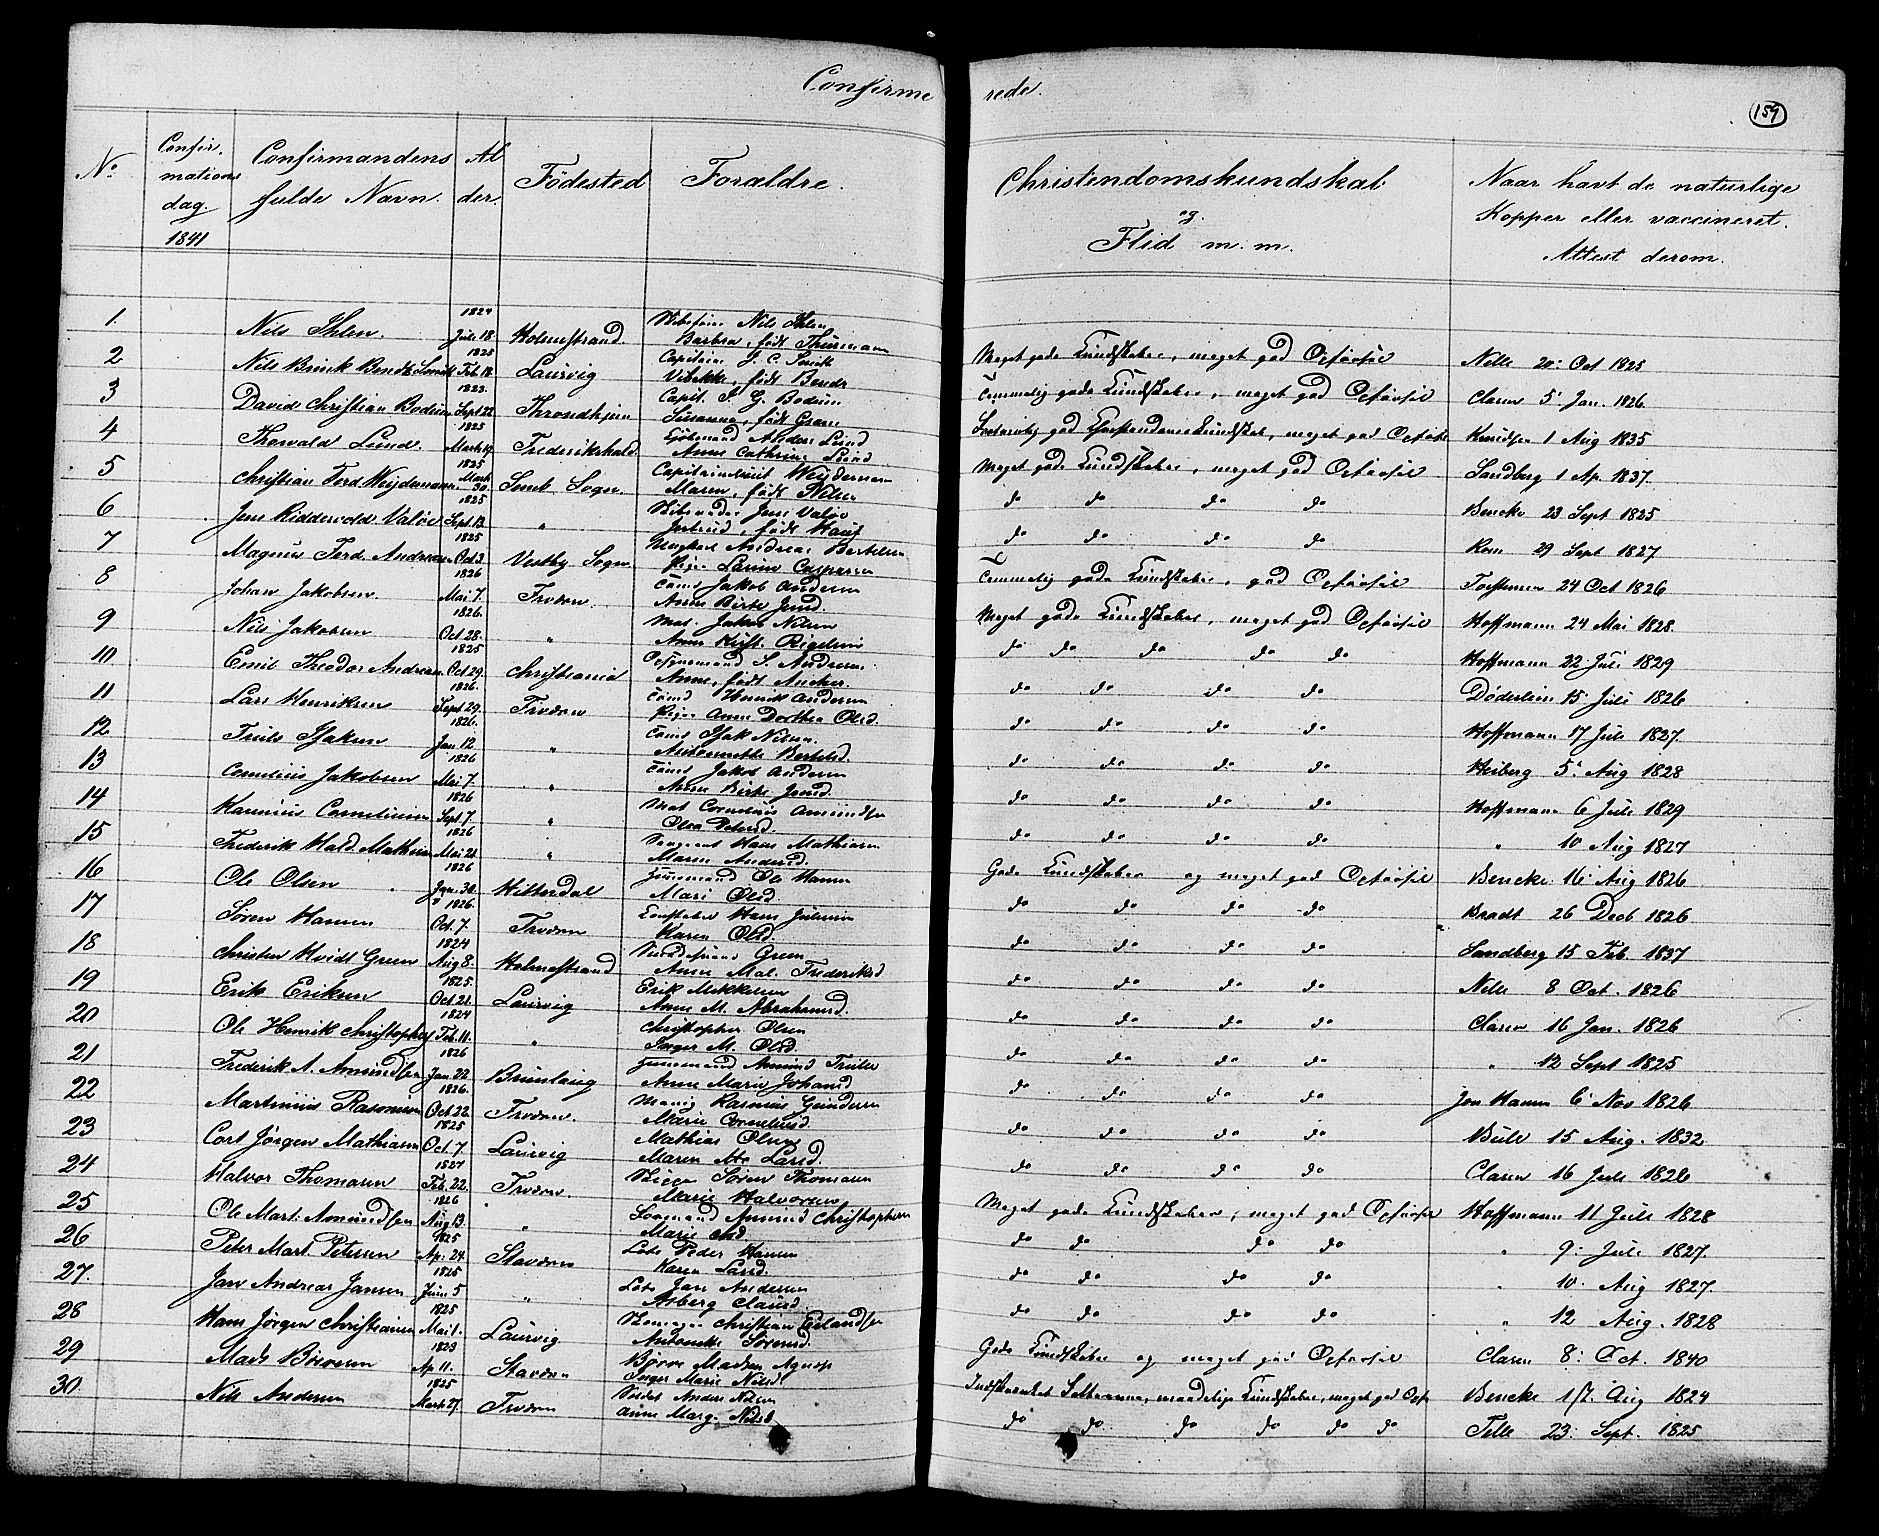 Confirmerede.
159
No
Confirmationsdag. 1841
Confirmandens fulde Navn.
Alder.
Födested
Forældre.
Christendomskundskab og Flid m. m.
Naar havt de naturlige Kopper eller vaccineret. Attest derom.
1. Nils Ihlen. 1824 Juli 18 Holmestrand Nils Ihlen Barbra, født Thurmann Meget gode Kundskaber, meget god Opførsel Nelle 20. Oct 1825
2 Nils Brinck Bendz Smith 1825 Feb. 18. Laurvig Capitain J. C. Smith Vibekke, født Bendz Temmelig gode Kundskaber, meget god Opførsel Claren 5 Jan. 1826.
3 David Christian Bodum 1823. Sept 22 Throndhjem Capit. J. G. Bodum Susanna, født Graae meget god Opførsel Knudsen 1 Aug 1835
4 Thorvald Lund. 1825 Marts 19 Frederikshald Anders Lund Anne Cathrine Lund Meget gode Kundskaber, meget god Opførsel Sandberg 1 Ap. 1837.
5 Christian Ferd. Weydemann 1825 Marts 30. Sem Sogn. Capitainlieut Weydemann Maren, født Nilsen do do do do Bencke 23 Sept 1825
6 Jens Ridderwold Valøe 1825 Sept. 13. " Jens Valøe Jertrud, født do do do do Rom 29 Sept 1827
7 Magnus Ferd. Andersen 1825 Oct 3. Vestby Sogn. Andreas Bertelsen Pige Larine Caspersen Temmelig gode Kundskaber, god Opførsel 24 Oct 1826
8 Johan Jakobsen. 1826 Mai 7. Fredværn. Jakob Andersen Anne Birte Jensd. Meget gode Kundskaber, meget god Opførsel Hoffmann 24 Mai 1828.
9 Nils Jakobsen 1826. Oct 28. " Mat. Jakob Nilsen Anne Kirst. do do do do do Hoffmann 22 Juli 1829
10 Emil Theodor Andersen 1825 Oct 29. Christiania S. Andersen. Anne, født Ancher. do do do do Døderlein 15 Juli 1826
11 Lars Henriksen 1826. Sept 29. Fredværn Tømd Henrik Andersen Pige Anne Dorthea Olsd. do do do do Hoffmann 17 Juli 1827.
12 Truls Isaksen 1826. Jan 12. " Tømd Isak Nilsen. Bertelsd. do do do do Heiberg 5. Aug 1828
13 Cornelius Jakobsen 1826 Mai 7. " Tømd Jakob Andersen Anne Birte Jensd. do do do do Hoffmann 6 Juli 1829
14 Corneliusen 1826 Sept. 7. " Mat Cornelius Amundsen Olea Petersd. do do do do " 10 Aug 1827
15 Frederik Hald. Mathisen 1826 Mai 21. " Sergeant Hans Mathiasen Maren Andersd. Gode Kundskaber og meget god Opførsel Bencke 16 Aug 1826
16 Ole Olsen 1826 Jan. 30. Hitterdal Ole Hansen Mari Olsd. do do do do Bradt 26 Decb 1826
17 Søren Hansen 1826. Oct. 7. Fredværn Constabel Hans Juliusen Karen Olsd. do do do do Sandberg 15 Feb. 1837
18 Christen Hvidt Green 1824 Aug 8. Holmestrand Green Anne Mal. Frederiksd do do do do Nelle 8 Oct. 1826
19 Erik Eriksen 1825. Oct. 21. Laurvig Erik Mikkelsen Anne M. Abrahamsd. do do do do Claren 16 Jan. 1826
20 Ole Henrik Christophers. 1824 Feb. 11. " Christopher Olsen Inger M. Olsd. do do do do " 12 Sept 1825
21 Frederik A. Amundsen 1826 Jan. 22. Brunlaug Amund Trulse Anne Marie Johansd. do do do do Jon Hansen 6 Nov 1826
22 Martinius Rasmusen 1826. Oct. 22. Fredværn. Rasmus Gundersen Marie Corneliusd. do do do do Bull 15 Aug. 1832.
23 Cort Jørgen Mathiasen 1825 Oct. 7 Laurvig Mathias Olsen Maren Larsd. do do do do Claren 16 Juli 1826
24 Halvor Thomasen 1827 Feb. 22. Fredværn. Søren Thomasen Marie Halvorsen Meget gode Kundskaber, meget god Opførsel Hoffmann 11 Juli 1828
25 Ole Mart. Amundsen 1826 Aug 13. " Amund Christophersen Marie do do do do " 9. Juli 1827.
26 Peter Mart. Petersen 1825 Ap. 24. Staværn Lots Peder Hansen Karen Larsd. do do do do " 10. Aug 1827.
27. Jan Andreas Jansen 1825 Juni 5 " Lots Jan Andersen Asberg Clausd. do do do do " 12 Aug. 1828
28 Hans Jørgen Christiansen 1825 Mai 1. Laurvig Christian Erlandsen Antonette Sørensd. Gode Kundskaber og meget god Opførsel Claren 8. Oct. 1840
29 Mads Børresen 1823 Ap 11. Stavern Børre Madsen Inger Marie Nilsd. Indskrænket Kundskaber, meget god Opf. Bencke 17. Aug 1824
30 Nils Andersen 1825 Marts 27. Fredværn Anders Nilsen Anne Marg. Nilsd do do do do do do Telle 23. Sept. 1825